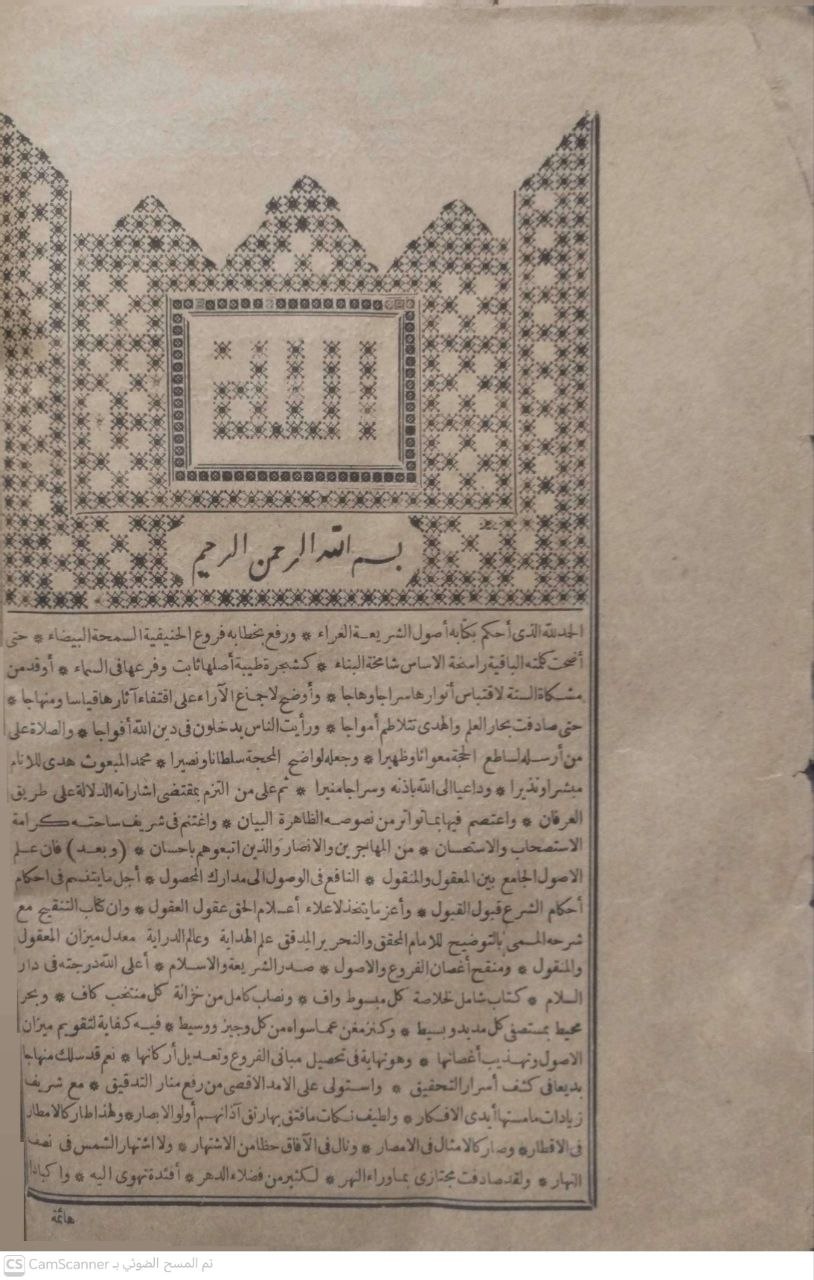 الله
بسم الله الرحمن الرحيم
الحمد لله الذى أحكم بكتابه أصول الشريعة الغراء * ورفع بخطابه فروع الحنيفية السمحة البيضاء * حتى
أضحت كلمته الباقية راسخة الاساس شامخة البناء * كشجرة طيبة أصلها ثابت وفرعها فى السماء * أوقد من
مشكاة السنة لاقتباس أنوارها سراجا وهاجا * وأوضح لاجماع الآراء على اقتفاء آثارها قياسا ومنهاجا *
حتى صادفت بحار العلم والهدى تتلاطم أمواجا * ورأيت الناس يدخلون فى دين الله أفواجا * والصلاة على
من أرسله لساطع الحجة معوانا وظهيرا * وجعله لواضح المحجة سلطانا ونصيرا * محمد المبعوث هدى للانام
مبشرا ونذيرا * وداعيا الى الله باذنه وسراجا منيرا * ثم على من التزم بمقتضى اشاراته الدلالة على طريق
العرفان * واعتصم فيها بما تواتر من نصوصه الظاهرة البيان * واغتنم فى شريف ساحته كرامة
الاستصحاب والاستحسان * من المهاجرين والانصار والذين اتبعوهم باحسان * (وبعد) فان علم
الاصول الجامع بين المعقول والمنقول * النافع فى الوصول الى مدارك المحصول * أجل ما يتنسم فى احكام
أحكام الشرع قبول القبول * وأعز ما يتخذ لاعلاء أعلام الحق عقول العقول * وان كتاب التنقيح مع
شرحه المسمى بالتوضيح للامام المحقق والنحرير المدقق علم الهداية وعالم الدراية معدل ميزان المعقول
والمنقول * ومنقح أغصان الفروع والاصول * صدر الشريعة والاسلام * أعلى الله درجته فى دار
السلام * كتاب شامل لخلاصة كل مبسوط واف * ونصاب كامل من خزانة كل منتخب كاف * وبحر
محيط بمستصفى كل مديد وبسيط * وكنز مغن عما سواه من كل وجيز ووسيط * فيه كفاية لتقويم ميزان
الاصول وتهذيب أغصانها * وهو نهاية فى تحصيل مبانى الفروع وتعديل أركانها * نعم قد سلك منهاجا
بديعا فى كشف أسرار التحقيق * واستولى على الامد الاقصى من رفع منار التدقيق * مع شريف
زيادات ما مستها أيدى الافكار * ولطيف نكات ما فتق بها رتق آذانهم أولو الابصار * ولهذا طار كالامطار
فى الاقطار * وصار كالامثال فى الامصار * ونال فى الآفاق حظا من الاشتهار * ولا اشتهار الشمس فى نصف
النهار * ولقد صادفت مجتازى بما وراء النهر * لكثير من فضلاء الدهر * أفئدة تهوى اليه * واكبادا
هائمة
CS CamScanner تم المسح الضوئي بـ